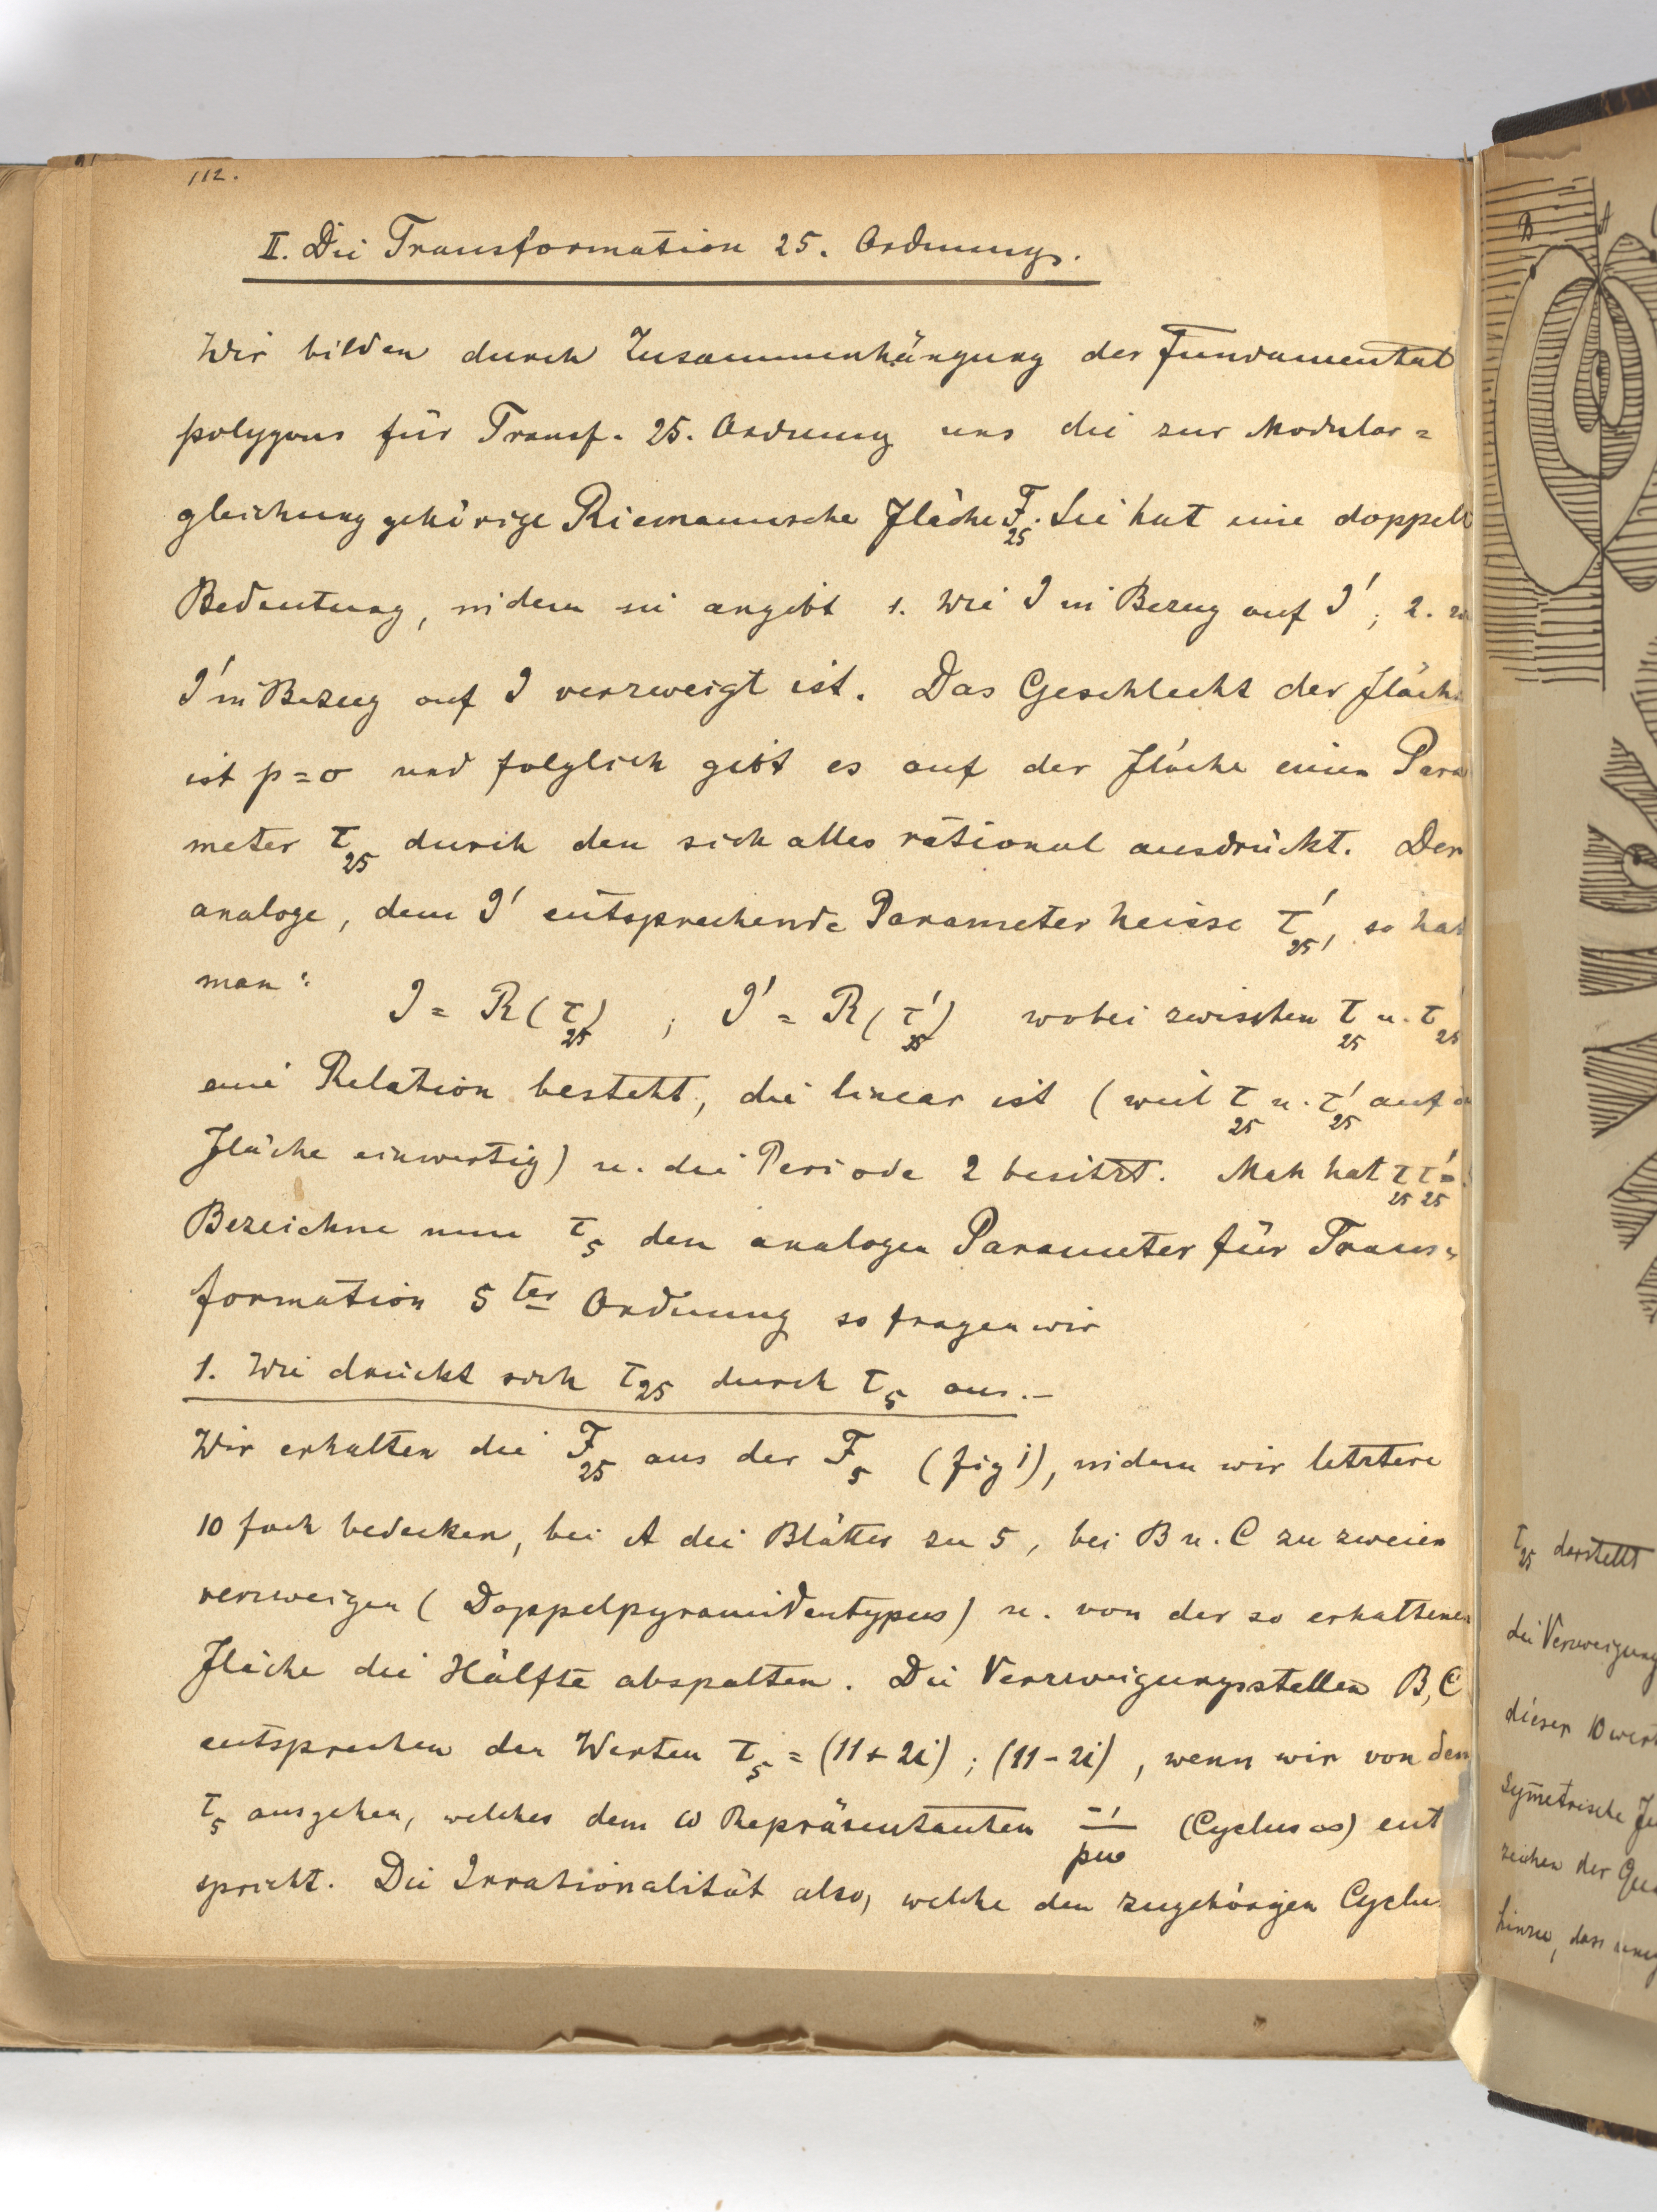 112.
II. Die Transformation 25. Ordnung.
Wir bilden durch Zusammenhängung der Fundamental
polygons für Transf. 25. Ordnung uns die zur Modular=
gleichung gehörige Riemannsche Fläche F25. Sie hat eine doppelt
Bedeutung, indem sie angibt 1. wie J in Bezug auf J'; 2. w
J' in Bezug auf J verzweigt ist. Das Geschlecht der Fläche
ist p=0 und folglich gibt es auf der Fläche einen Para
meter τ25 durch den sich alles rational ausdrückt. Der
analoge, dem J' entsprechende Parameter heisse τ'25, so hat
man: J = R(τ25) ; J' = R(τ'25) wobei zwischen τ25 u. τ'25
eine Relation besteht, die linear ist (weil τ25 u. τ'25 auf d
Fläche einwertig) u. die Periode 2 besitzt. Man hat τ25 τ'25 =
Bezeichne nun τ5 den analogen Parameter für Trans=
formation 5ter Ordnung so fragen wir
1. Wie drückt sich τ25 durch τ5 aus.—
Wir erhalten die F25 aus der F5 (fig 1), indem wir letztere
10 fach bedecken, bei A die Blätter zu 5, bei B u. C zu zweien
verzweigen (Doppelpyramidentypus) u. von der so erhaltenen
Fläche die Hälfte abspalten. Die Verzweigungsstellen B, C
entsprechen den Werten τ5 = (11+2i) ; (11-2i), wenn wir von dem
τ5 ausgehen, welches dem ω Repräsentanten -1/5ω (Cyclus ∞) ent
spricht. Die Irrationalität also, welche den zugehörigen Cyclu
B A
τ25 darstellt
die Verzweigung
dieser 10 wert
Symetrische Fu
zeichen der Qua
hinzu, dass